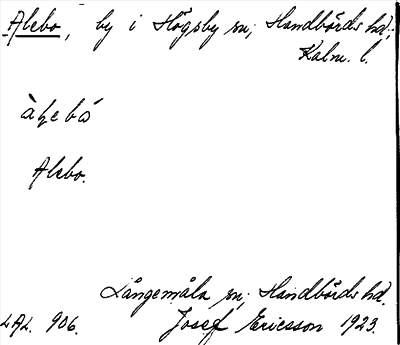 Alebo, by i Högsby sn; Handbörds hd;
Kalm. l.
Alebo.
Långemåla sn; Handbörds hd.
LAL. 906. Josef Ericsson 1923.